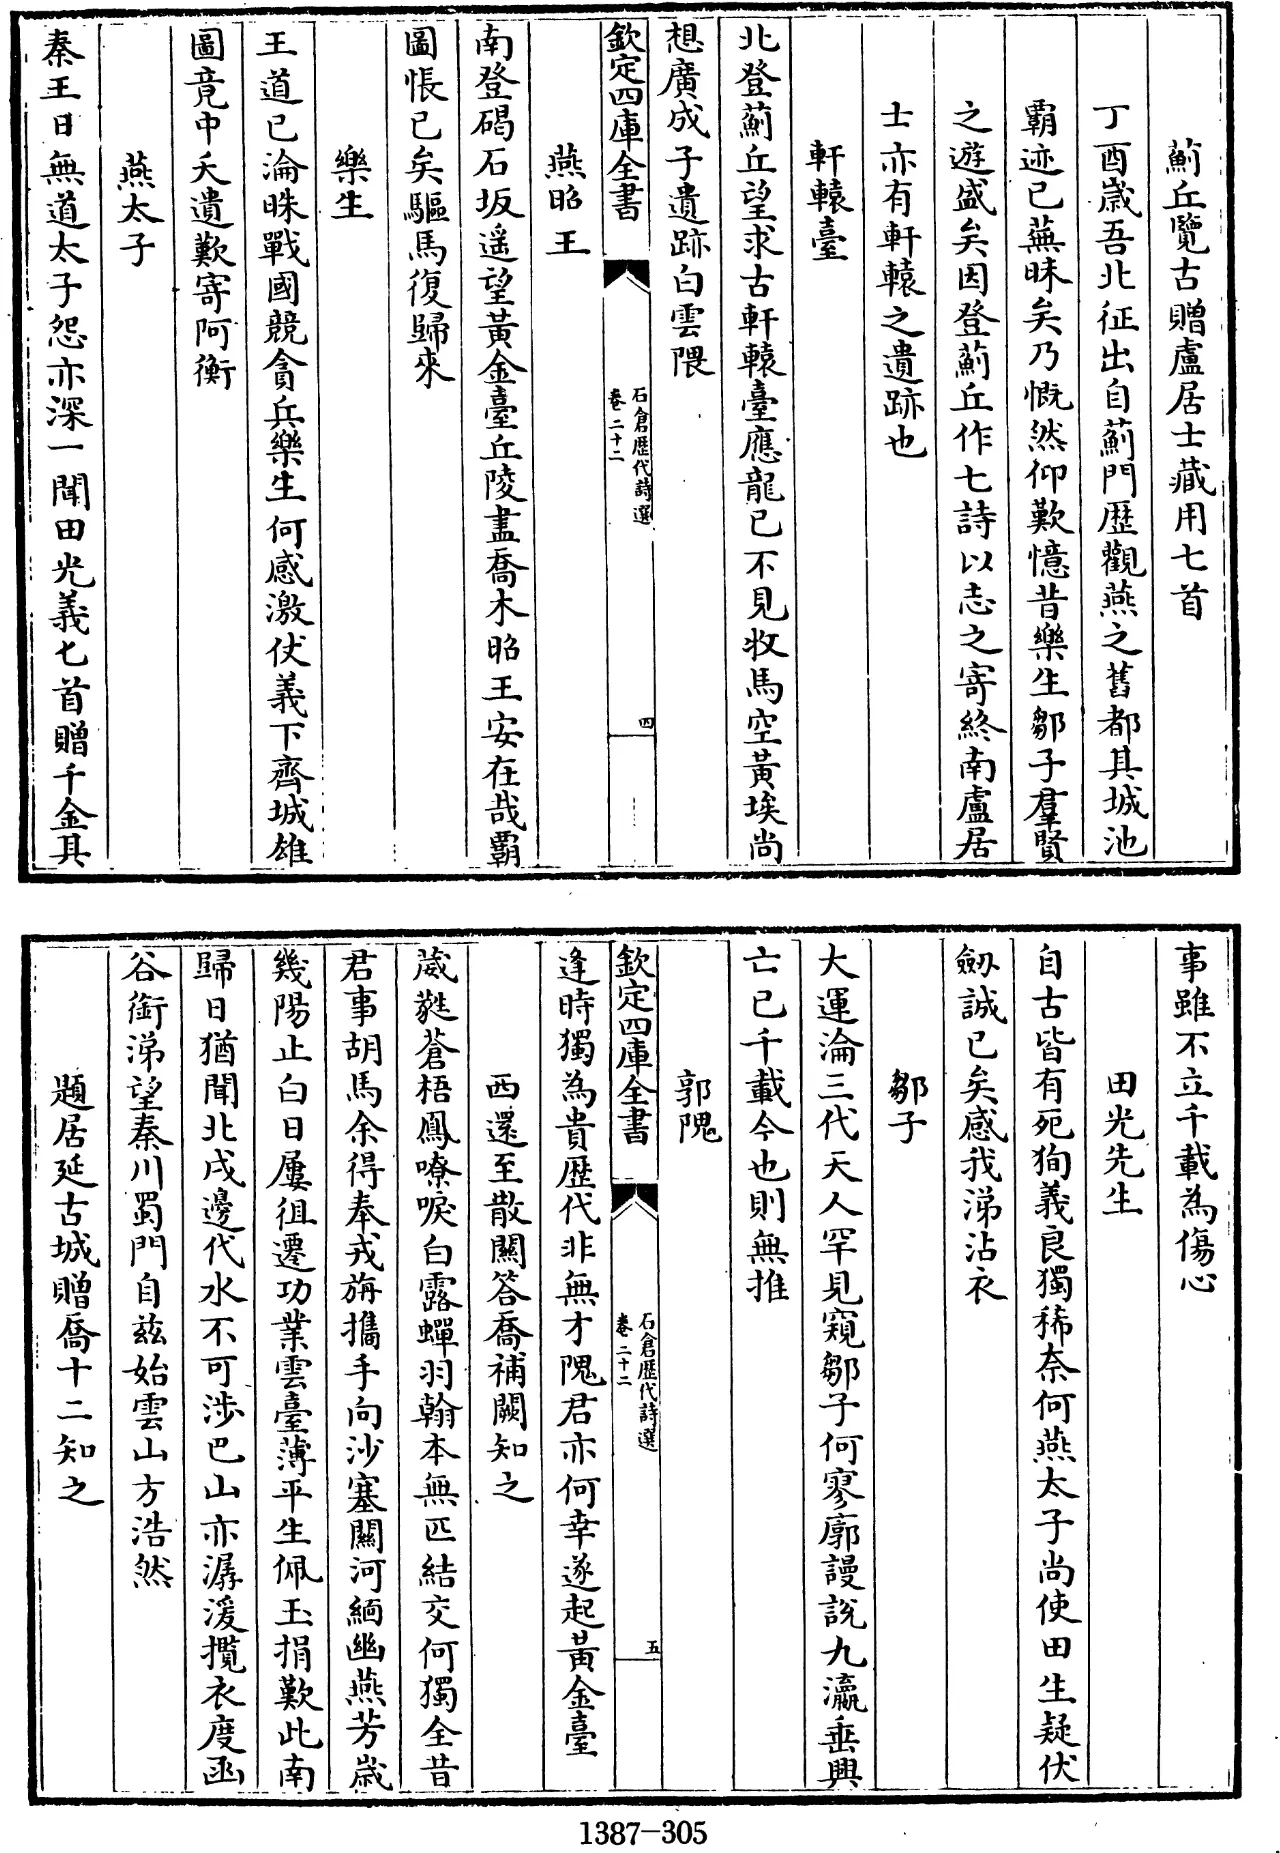 薊丘覽古贈盧居士藏用七首
丁酉歲吾北征出自薊門歴觀燕之舊都其城池
霸迹已蕪昧矣乃慨然仰歎憶昔樂生鄒子羣賢
之遊盛矣因登薊丘作七詩以志之寄終南盧居
士亦有軒轅之遺跡也
軒轅臺
北登薊丘望求古軒轅臺應龍已不見牧馬空黃埃尚
想廣成子遺跡白雲隈
欽定四庫全書
石倉歴代詩選
卷二十二
四
燕昭王
南登碣石坂遥望黃金臺丘陵盡喬木昭王安在哉霸
圖悵已矣驅馬復歸來
樂生
王道已淪昧戰國競貪兵樂生何感激仗義下齊城雄
圖竟中夭遺歎寄阿衡
燕太子
秦王日無道太子怨亦深一聞田光義匕首贈千金其
事雖不立千載為傷心
田光先生
自古皆有死狥義良獨稀奈何燕太子尚使田生疑伏
劔誠已矣感我涕沾衣
鄒子
大運淪三代天人罕見窺鄒子何寥廓謾說九瀛垂興
亡已千載今也則無推
郭隗
欽定四庫全書
石倉歴代詩選
卷二十二
五
逢時獨為貴歴代非無才隗君亦何幸遂起黃金臺
西還至散闗答喬補闕知之
葳蕤蒼梧鳳嘹唳白露蟬羽翰本無匹結交何獨全昔
君事胡馬余得奉戎旃攜手向沙塞闗河緬幽燕芳歲
幾陽止白日屢徂遷功業雲臺薄平生佩玉捐歎此南
歸日猶聞北戍邊代水不可渉巴山亦潺湲攬衣度函
谷銜涕望秦川蜀門自兹始雲山方浩然
題居延古城贈喬十二知之
1387-305